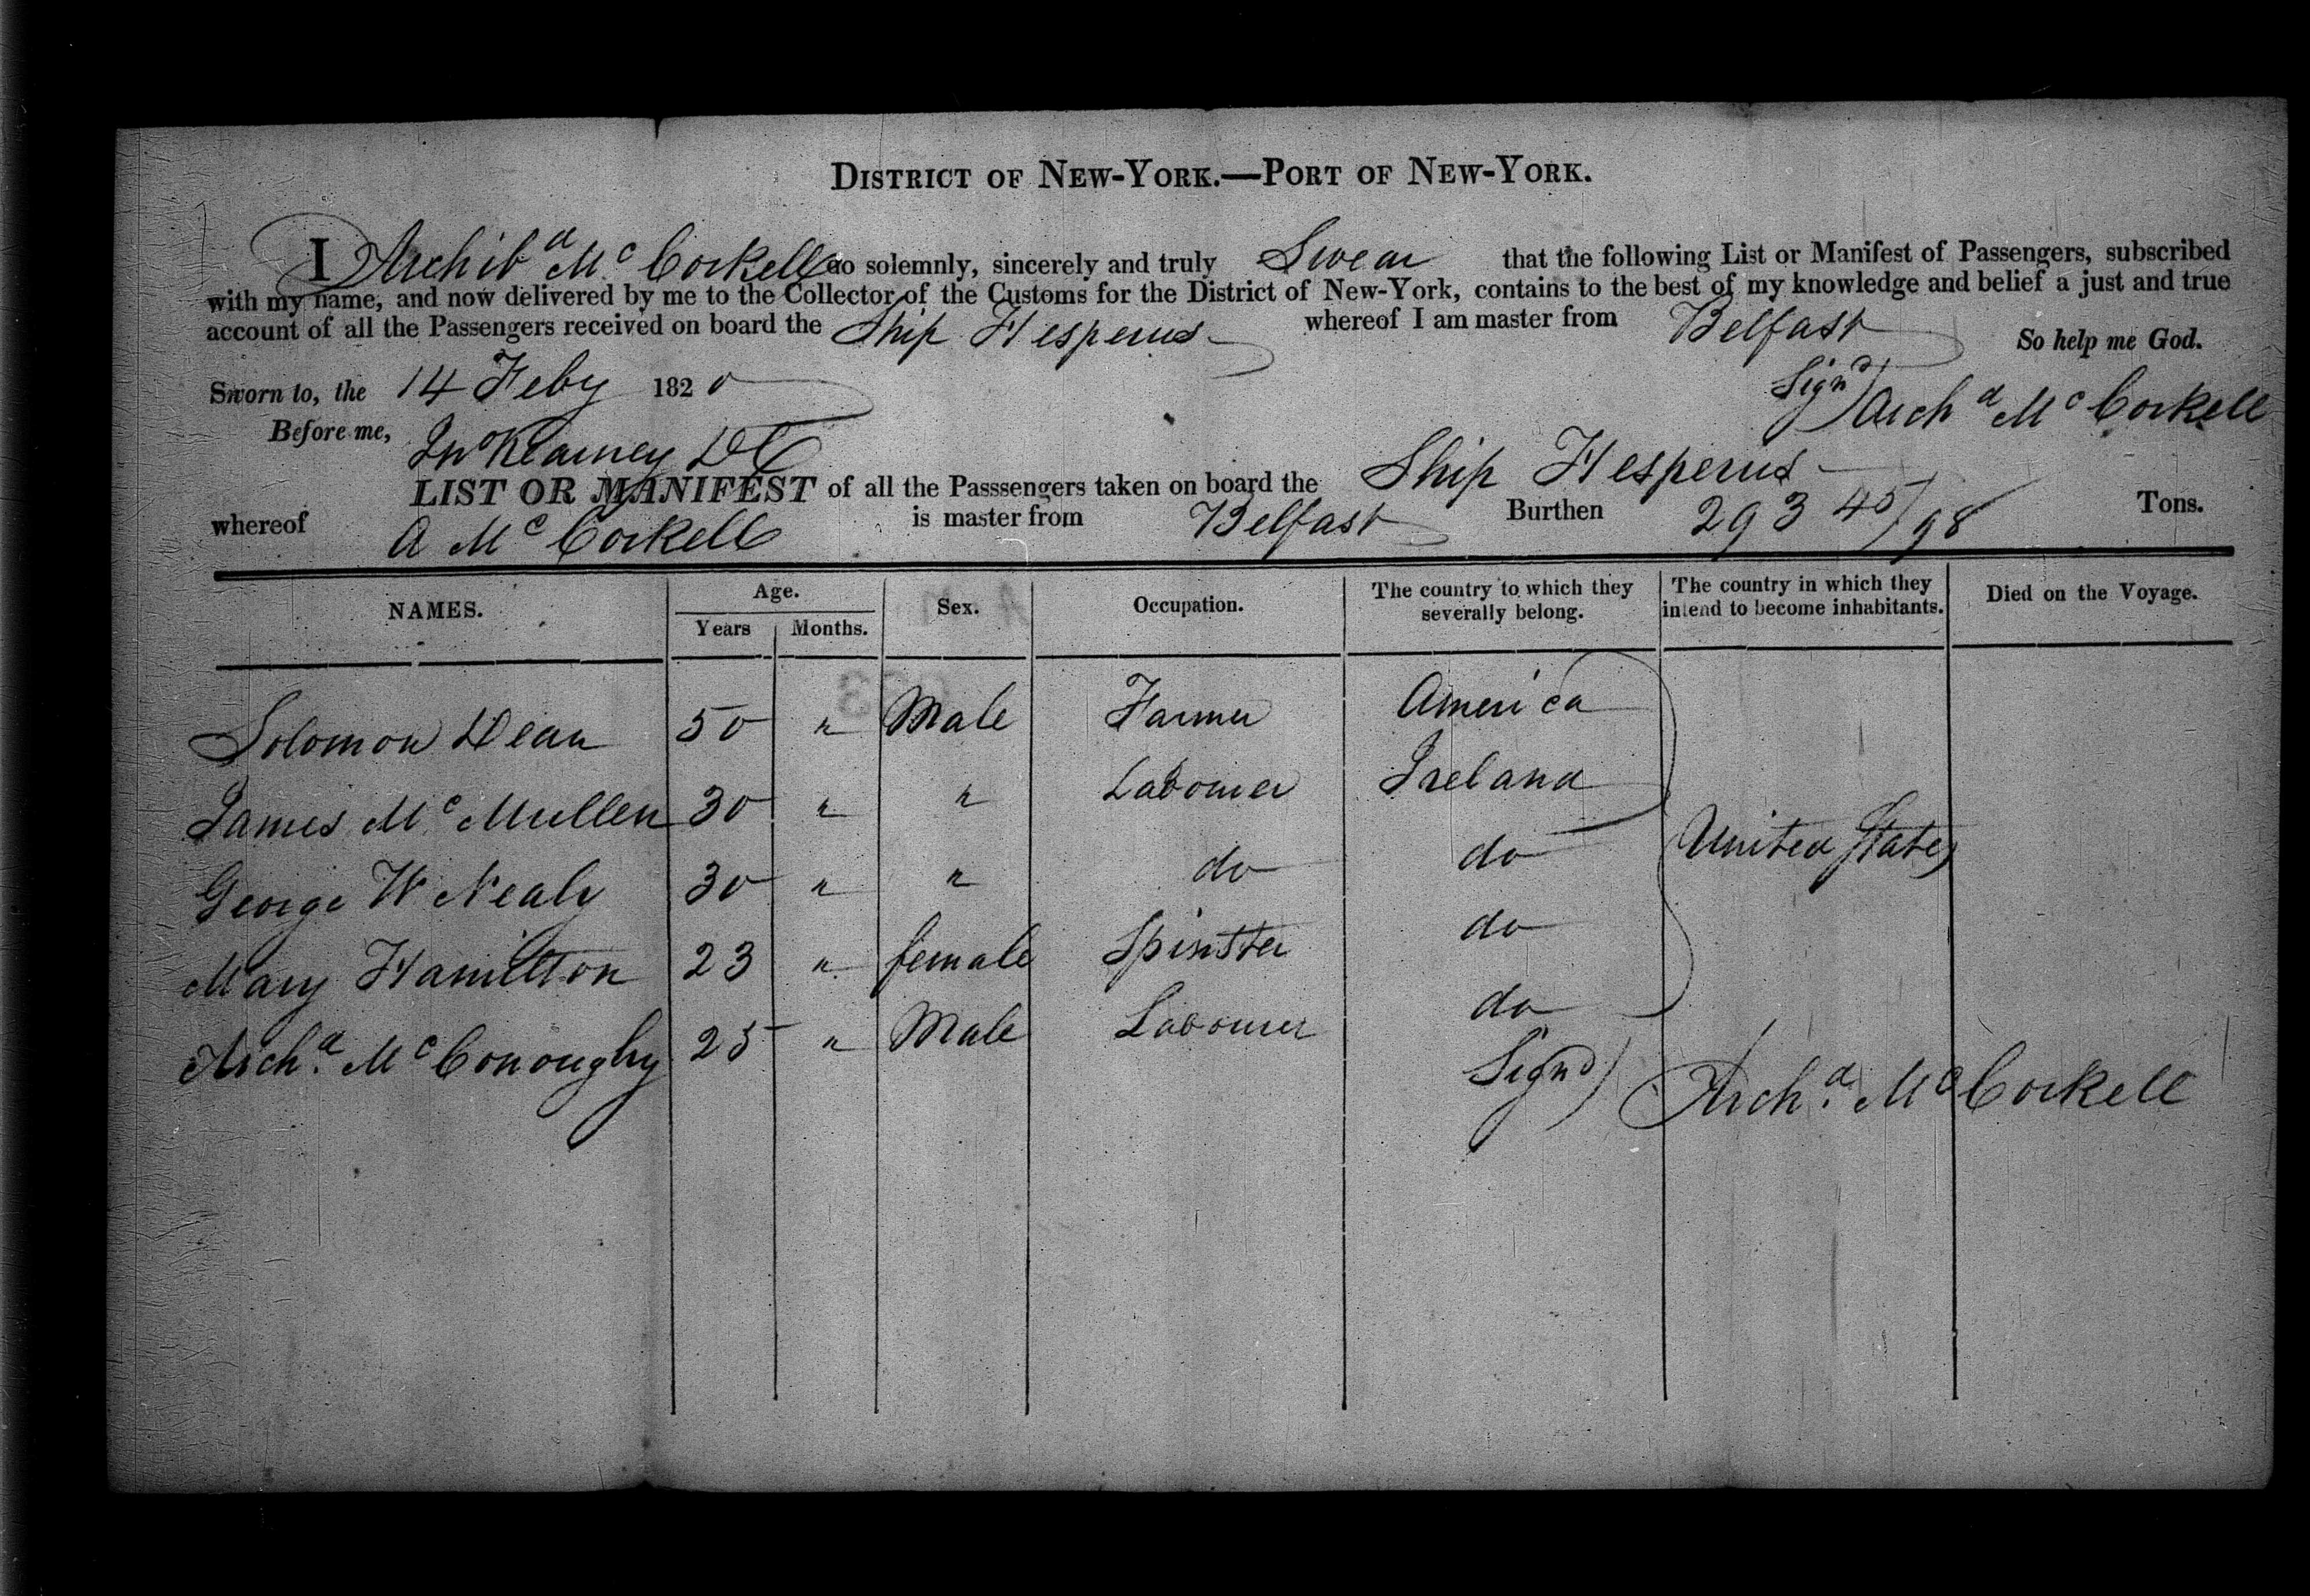 DISTRICT OF NEW-YORK.—PORT OF NEW-YORK.
I Archibd Mc Corkell do solemnly, sincerely and truly Swear that the following List or Manifest of Passengers, subscribed
with my name, and now delivered by me to the Collector of the Customs for the District of New-York, contains to the best of my knowledge and belief a just and true
account of all the Passengers received on board the Ship Hesperus whereof I am master from Belfast So help me God.
Sworn to, the 14 Feby 1820 Signd) Archd Mc Corkell
Before me, Jno Kearney DC
LIST OR MANIFEST of all the Passsengers taken on board the Ship Hesperus
whereof A Mc Corkell is master from Belfast Burthen 293 45/98 Tons.
NAMES. Age. Years Months. Sex. Occupation. The country to which they severally belong. The country in which they intend to become inhabitants. Died on the Voyage.
Solomon Dean 50 " Male Farmer America
James Mc Mullen 30 " " Labourer Ireland
George W Nealy 30 " " do do United States
Mary Hamilton 23 " female Spinster do
Archd. Mc Conoughy 25 " Male Labourer do
Signd) Archd. Mc Corkell